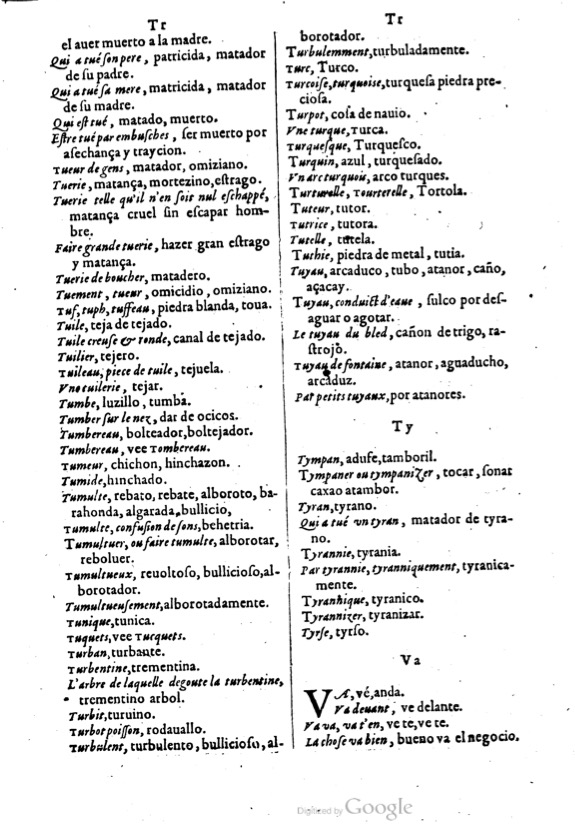 Tr
el auer muerto a la madre.
Qui a tué ſon pere, patricida, matador
de ſu padre.
Qui a tué ſa mere, matricida, matador
de ſu madre.
Qui eſt tué, matado, muerto.
Eſtre tué par embuſches, ſer muerto por
aſechança y traycion.
Tueur de gens, matador, omiziano.
Tuerie, matança, mortezino, eſtrago.
Tuerie telle qu'il n'en ſoit nul eſchappé,
matança cruel ſin eſcapar hom-
bre.
Faire grande tuerie, hazer gran eſtrago
y matança.
Tuerie de boucher, matadero.
Tuement, tueur, omicidio, omiziano.
Tuf, tuph, tuffeau, piedra blanda, toua.
Tuile, teja de tejado.
Tuile creuſe & ronde, canal de tejado.
Tuilier, tejero.
Tuileau, piece de tuile, tejuela.
Vne tuilerie, tejar.
Tumbe, luzillo, tumba.
Tumber ſur le nez, dar de ocicos.
Tumbereau, bolteador, boltejador.
Tumbereau, vee Tombereau.
Tumeur, chichon, hinchazon.
Tumide, hinchado.
Tumulte, rebato, rebate, alboroto, ba-
rahonda, algarada, bullicio,
Tumulte, confuſion de ſons, behetria.
Tumultuer, ou faire tumulte, alborotar,
reboluer.
Tumultueux, reuoltoſo, bullicioſo, al-
borotador.
Tumultueuſement, alborotadamente.
Tunique, tunica.
Tuquets, vee Tucquets.
Turban, turbante.
Turbentine, trementina.
L'arbre de laquelle degoute la turbentine,
trementino arbol.
Turbit, turuino.
Turbot poiſſon, rodauallo.
Turbulent, turbulento, bullicioſo, al-
Tr
borotador.
Turbulemment, turbuladamente.
Turc, Turco.
Turcoiſe, turquoiſe, turqueſa piedra pre-
cioſa.
Turpot, coſa de nauio.
Vne turque, Turca.
Turqueſque, Turqueſco.
Turquin, azul, turqueſado.
Vn arc turquois, arco turques.
Turturelle, Tourterelle, Tortola.
Tuteur, tutor.
Tutrice, tutora.
Tutelle, tutela.
Tuthie, piedra de metal, tutia.
Tuyau, arcaduco, tubo, atanor, caño,
açacay.
Tuyau, conduict d'eaue, ſulco por deſ-
aguar o agotar.
Le tuyau du bled, cañon de trigo, ra-
ſtrojo.
Tuyau de fontaine, atanor, aguaducho,
arcaduz.
Par petits tuyaux, por atanores.
Ty
Tympan, adufe, tamboril.
Tympaner ou tympanizer, tocar, ſonar
caxa o atambor.
Tyran, tyrano.
Qui a tué vn tyran, matador de tyra-
no.
Tyrannie, tyrania.
Par tyrannie, tyranniquement, tyranica-
mente.
Tyranhique, tyranico.
Tyrannizer, tyranizar.
Tyrſe, tyrſo.
Va
VA, vé, anda.
Va deuant, ve delante.
Va va, va t'en, ve te, ve te.
La choſe va bien, bueno va el negocio.
Digitized by Google